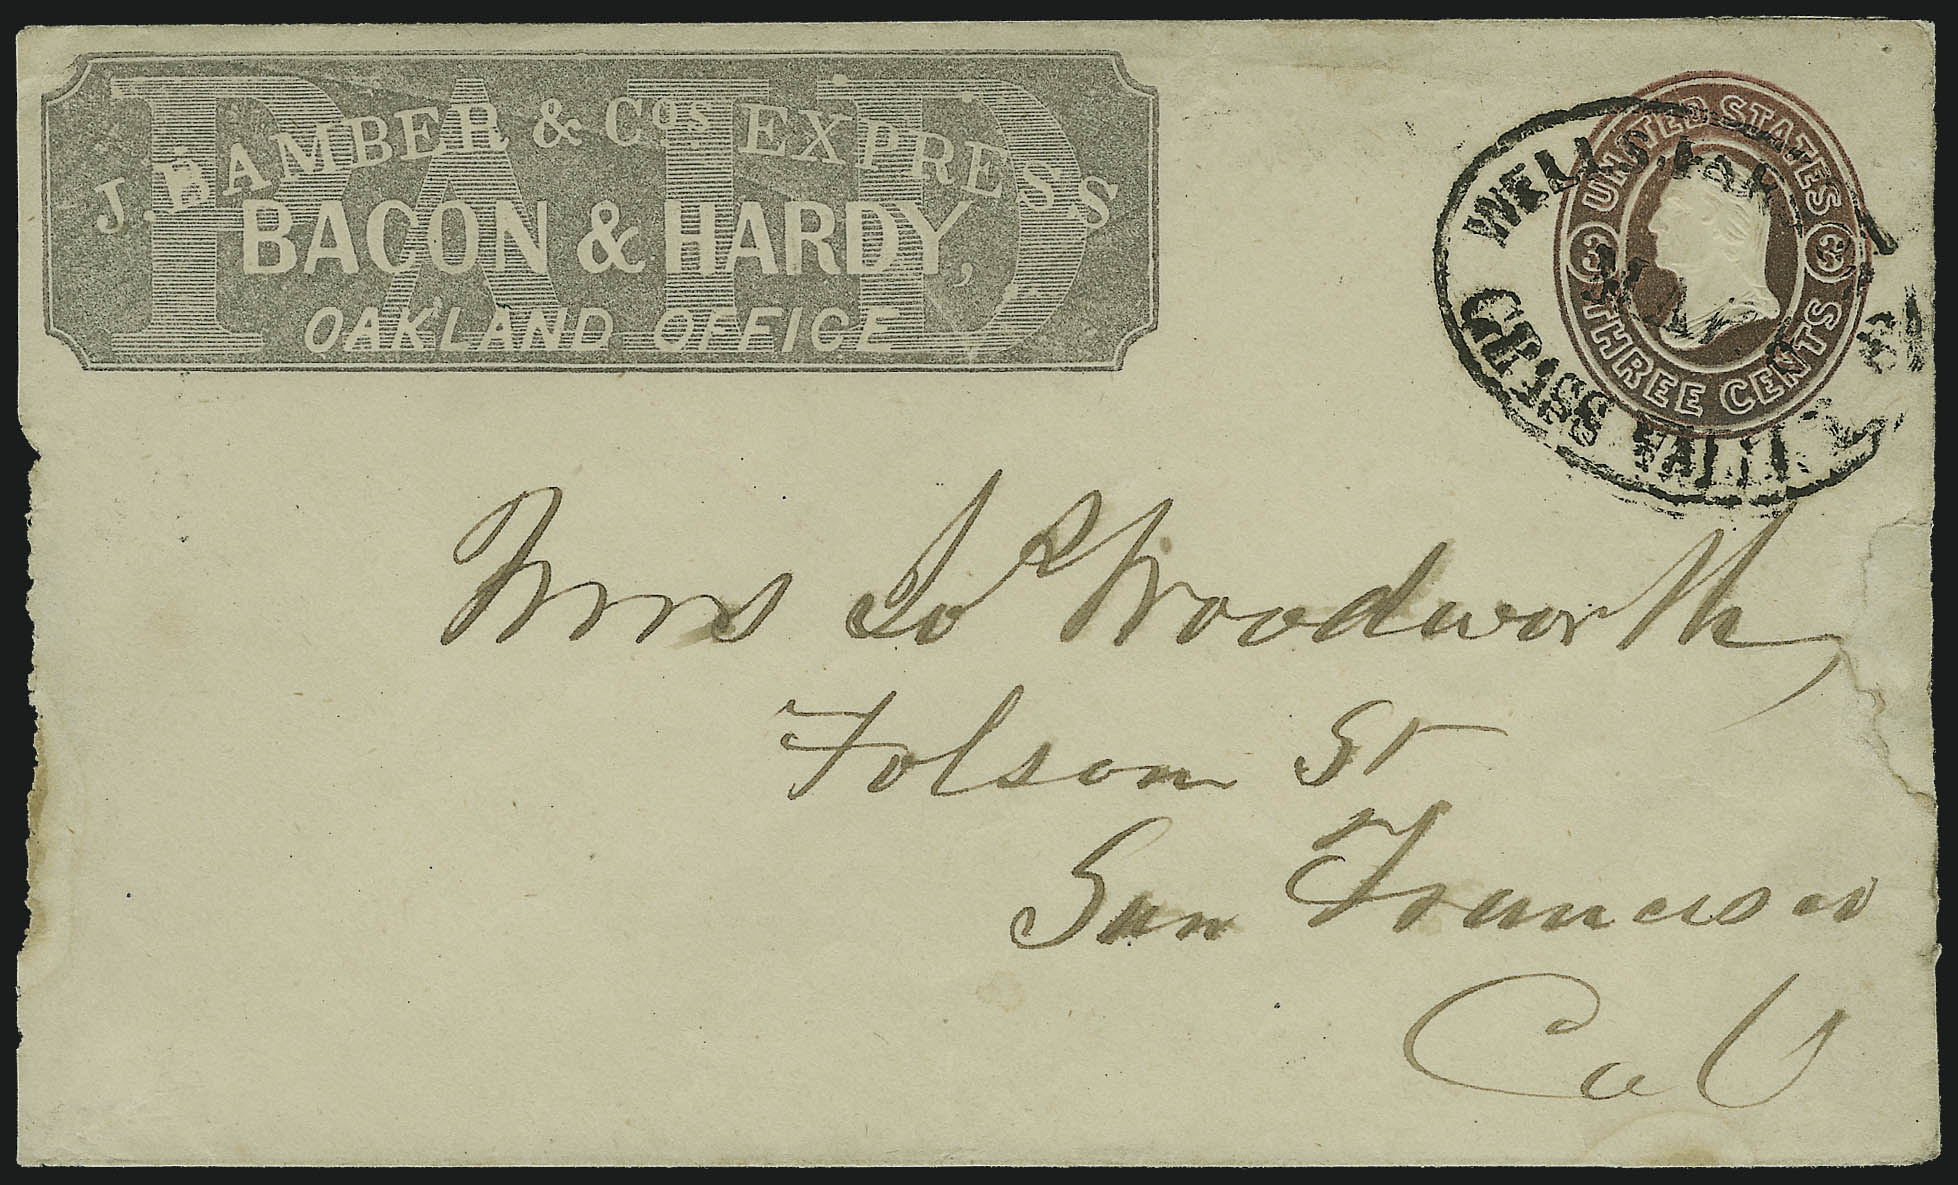 PAID
J. BAMBER & Cos EXPRESS
BACON & HARDY,
OAKLAND OFFICE
UNITED STATES
3 3
THREE CENTS
WELLS, FAR
GRASS VALLEY
Mrs Woodworth,
Folsom St
San Francisco
Cal